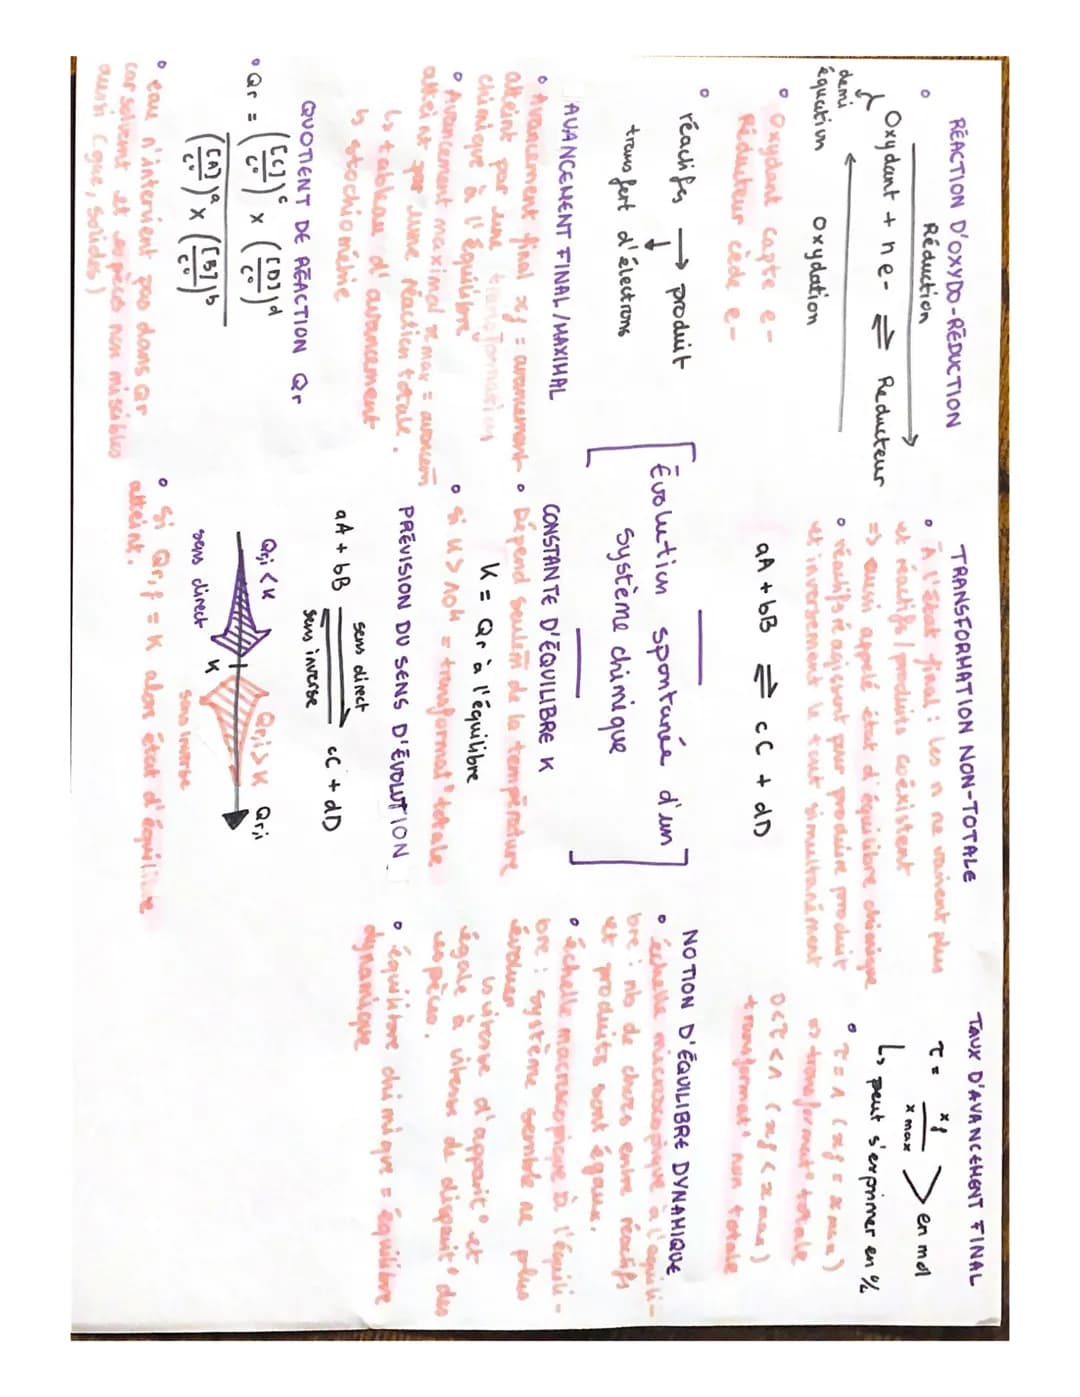 RÉACTION D'OXYDO-RÉDUCTION
Réduction
Oxydant + n e- ⇌ Reducteur
demi
équation
Oxydation
Oxydant capte e-
Réducteur cède e-
réactifs → produit
transfert d'électrons
AVANCEMENT FINAL/MAXIMAL
Avancement final xf = avancement
atteint par une transformation
chimique à l'équilibre
Avancement maximal xmax = avancem
atteint par une réaction totale.
↳ tableau d'avancement
↳ stochiométrie
QUOTIENT DE RÉACTION Qr
Qr = ([C]/c°)^c × ([D]/c°)^d
([A]/c°)^a × ([B]/c°)^b
eau n'intervient pas dans Qr
car solvant et espèces non miscibles
aussi (gaz, solides)
TRANSFORMATION NON-TOTALE
À l'état final : les n ne varient plus
et réactifs/produits coéxistent
=> aussi applé état d'équilibre chimique
réactifs réagissent pour produire produit
et inversement le tout simultanément
aA + bB ⇌ cC + dD
Évolution spontanée d'un
système chimique
CONSTANTE D'ÉQUILIBRE K
Dépend seulem de la température
K = Qr à l'équilibre
si K > 10⁴ = transformat° totale
PRÉVISION DU SENS D'ÉVOLUTION
sens direct
aA + bB
cC + dD
sens inverse
Qr,i < K
Qr,i > K
Qr,i
K
sens direct
sens inverse
si Qr,f = K alors état d'équilibre
atteint.
TAUX D'AVANCEMENT FINAL
τ = xf / xmax > en mol
↳ peut s'exprimer en %
τ = 1 (xf = xmax)
=> transformat° totale
0<τ<1 (xf < xmax)
transformat° non totale
NOTION D'ÉQUILIBRE DYNAMIQUE
échelle microscopique à l'équili-
bre : nb de chocs entre réactifs
et produits sont égaux.
échelle macroscopique à l'équili-
bre : système semble ne plus
évoluer
↳ vitesse d'apparit° et
égale à vitesse de disparit° des
espèces.
équilibre chimique = équilibre
dynamique